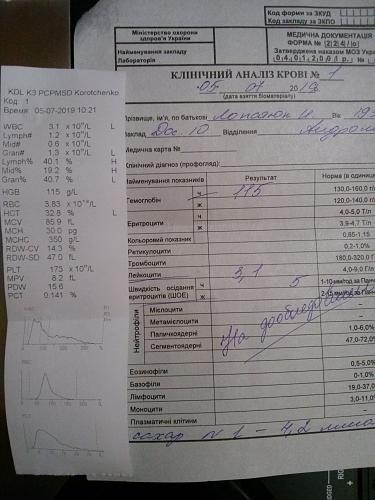 KDL K3 PCPM5D Korotchenko
Код: 1
Время: 05-07-2019 10:21
WBC 3.1 x 10⁹/L L
Lymph# 1.2 x 10⁹/L
Mid# 0.6 x 10⁹/L
Gran# 1.3 x 10⁹/L L
Lymph% 40.1 % H
Mid% 19.2 % H
Gran% 40.7 % L
HGB 115 g/L
RBC 3.83 x 10¹²/L
HCT 32.8 % L
MCV 85.9 fL
MCH 30.0 pg
MCHC 350 g/L
RDW-CV 14.3 %
RDW-SD 47.0 fL
PLT 173 x 10⁹/L
MPV 8.2 fL
PDW 15.6
PCT 0.141 %
WBC
RBC
PLT
Код форми за ЗКУД
Код закладу за ЗКПО
Міністерство охорони
здоров'я України
Найменування закладу
Лабораторія
МЕДИЧНА ДОКУМЕНТАЦІЯ
ФОРМА № 224/о
Затверджена наказом МОЗ Украї
04.01.2001 р. №
КЛІНІЧНИЙ АНАЛІЗ КРОВІ № 1
05 07 2019
(дата взяття біоматеріалу)
Прізвище, ім'я, по батькові
Заклад Відділення
Медична карта №
Клінічний діагноз (профогляд):
Найменування показників Результат Норма (в одиниц
Гемоглобін ч 115 130,0-160,0 г/л
ж 120,0-140,0 г/
Еритроцити ч 4,0-5,0 Т/л
ж 3,9-4,7 Т/л
Кольоровий показник 0,85-1,15
Ретикулоцити 0,2-1,0%
Тромбоцити 180,0-320,0 Г
Лейкоцити 3,1 4,0-9,0 Г/л
Швидкість осідання
еритроцитів (ШОЕ) ч 5 1-10 мм/год за Панч
ж 2-15 мм/год за Панч
Нейтрофіли
Мієлоцити
Метамієлоцити
Паличкоядерні 1,0-6,0%
Сегментоядерні 47,0-72,0
Еозинофіли 0,5-5,0%
Базофіли 0-1,0%
Лімфоцити 19,0-37,0
Моноцити 3,0-11,0
Плазматичні клітини
сахар N 1 - 4,2 ммо